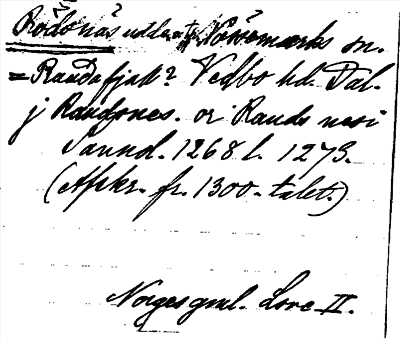 Rödönäs uddeart Nössemarks sn.
= Raudafjall? Vedbo hd. Dal.
j Raudones. or Raudu nesi
Sannd. 1268 l. 1273.
(Afskr. fr. 1300-talet.)
Norges gml. Love II.